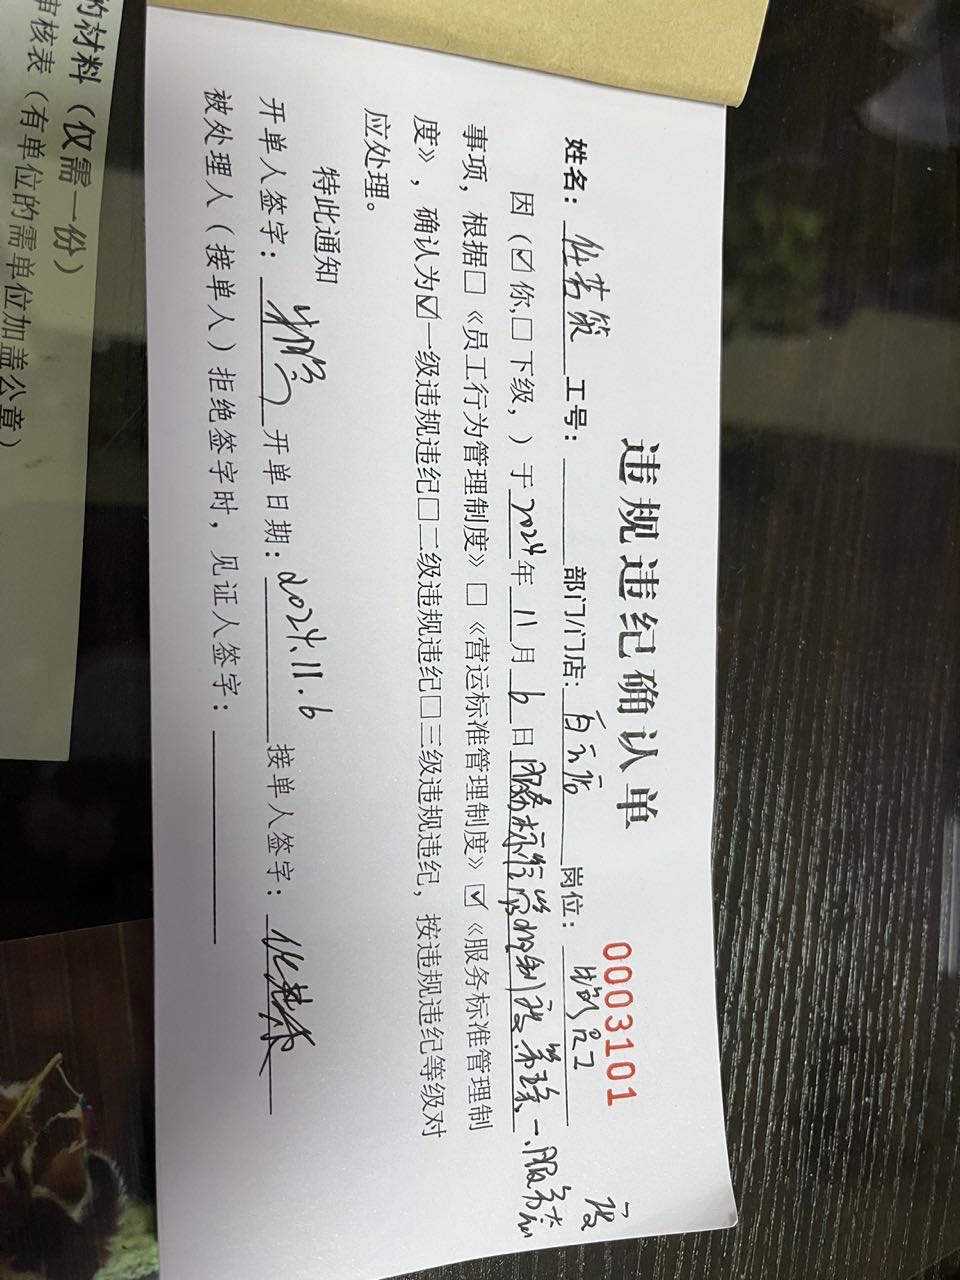 违规违纪确认单
0003101
姓名： 工号： 部门/门店：白云店 岗位：
因（☑你,□下级，）于2024年11月6日服务标准管理制度第 一、服务
事项，根据□《员工行为管理制度》□《营运标准管理制度》☑《服务标准管理制
度》，确认为☑一级违规违纪□二级违规违纪□三级违规违纪，按违规违纪等级对
应处理。
特此通知
开单人签字： 开单日期：2024.11.6 接单人签字：
被处理人（接单人）拒绝签字时，见证人签字：
的材料（仅需一份）
审核表（有单位的需单位加盖公章）